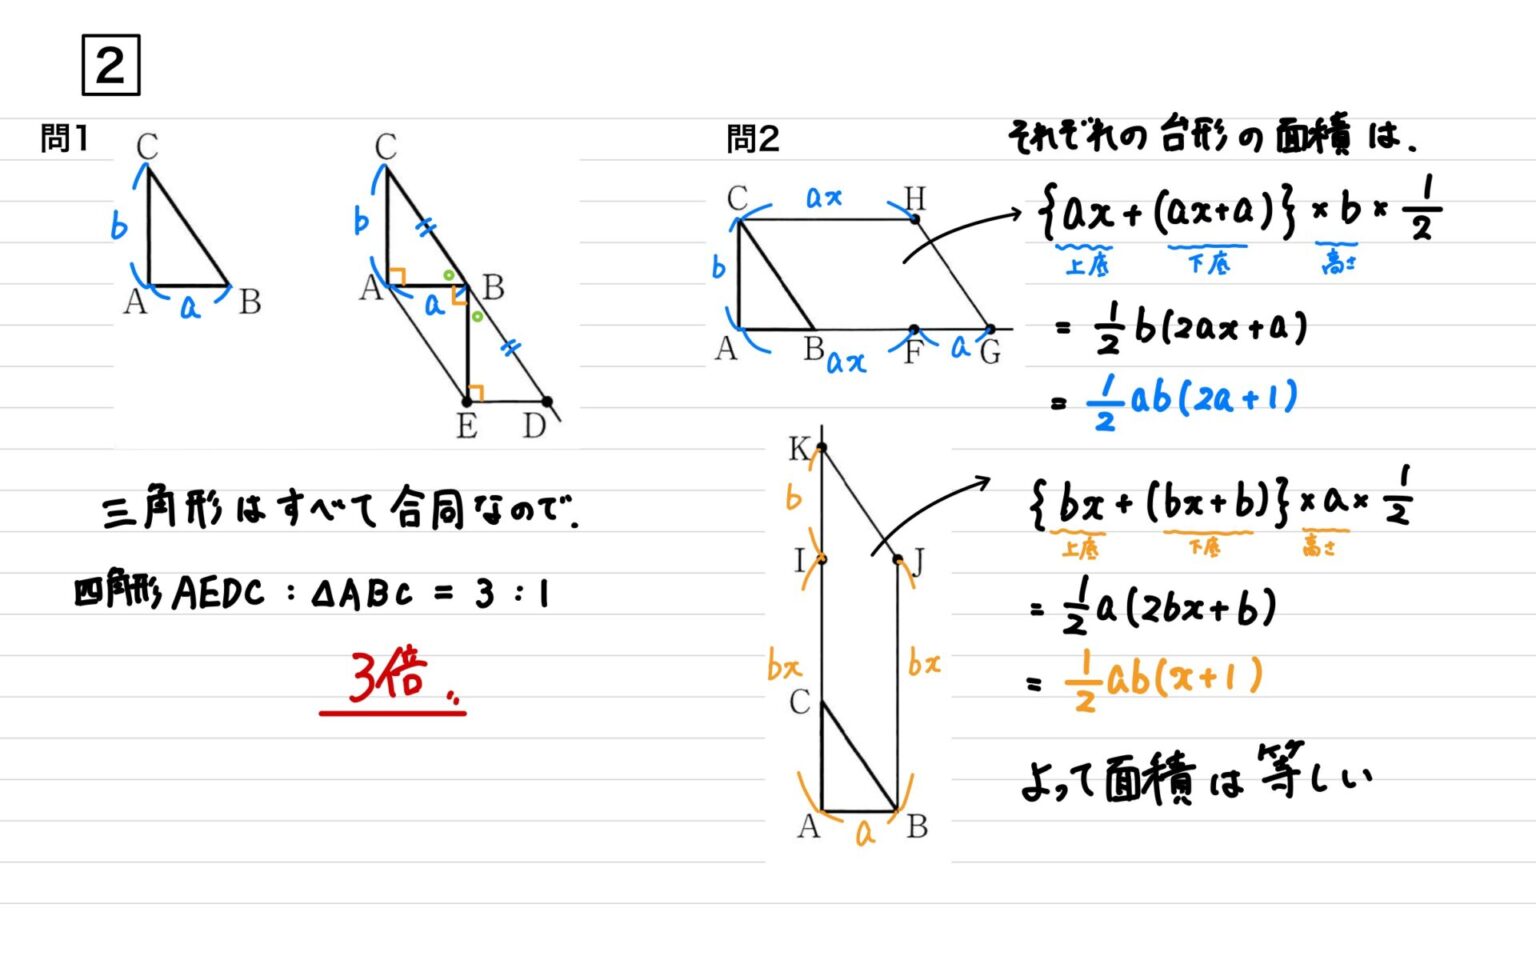 2
問1
C
b
A
a
B
C
b
A
a
B
E
D
三角形はすべて合同なので.
四角形AEDC : △ABC = 3 : 1
3倍.
問2
C
ax
H
b
A
B
ax
F
a
G
それぞれの台形の面積は.
{ax+(ax+a)}×b×1/2
上底 下底 高さ
= 1/2 b(2ax+a)
= 1/2 ab(2a+1)
K
b
I
J
bx
bx
C
A
a
B
{bx+(bx+b)}×a×1/2
上底 下底 高さ
= 1/2 a(2bx+b)
= 1/2 ab(x+1)
よって面積は等しい